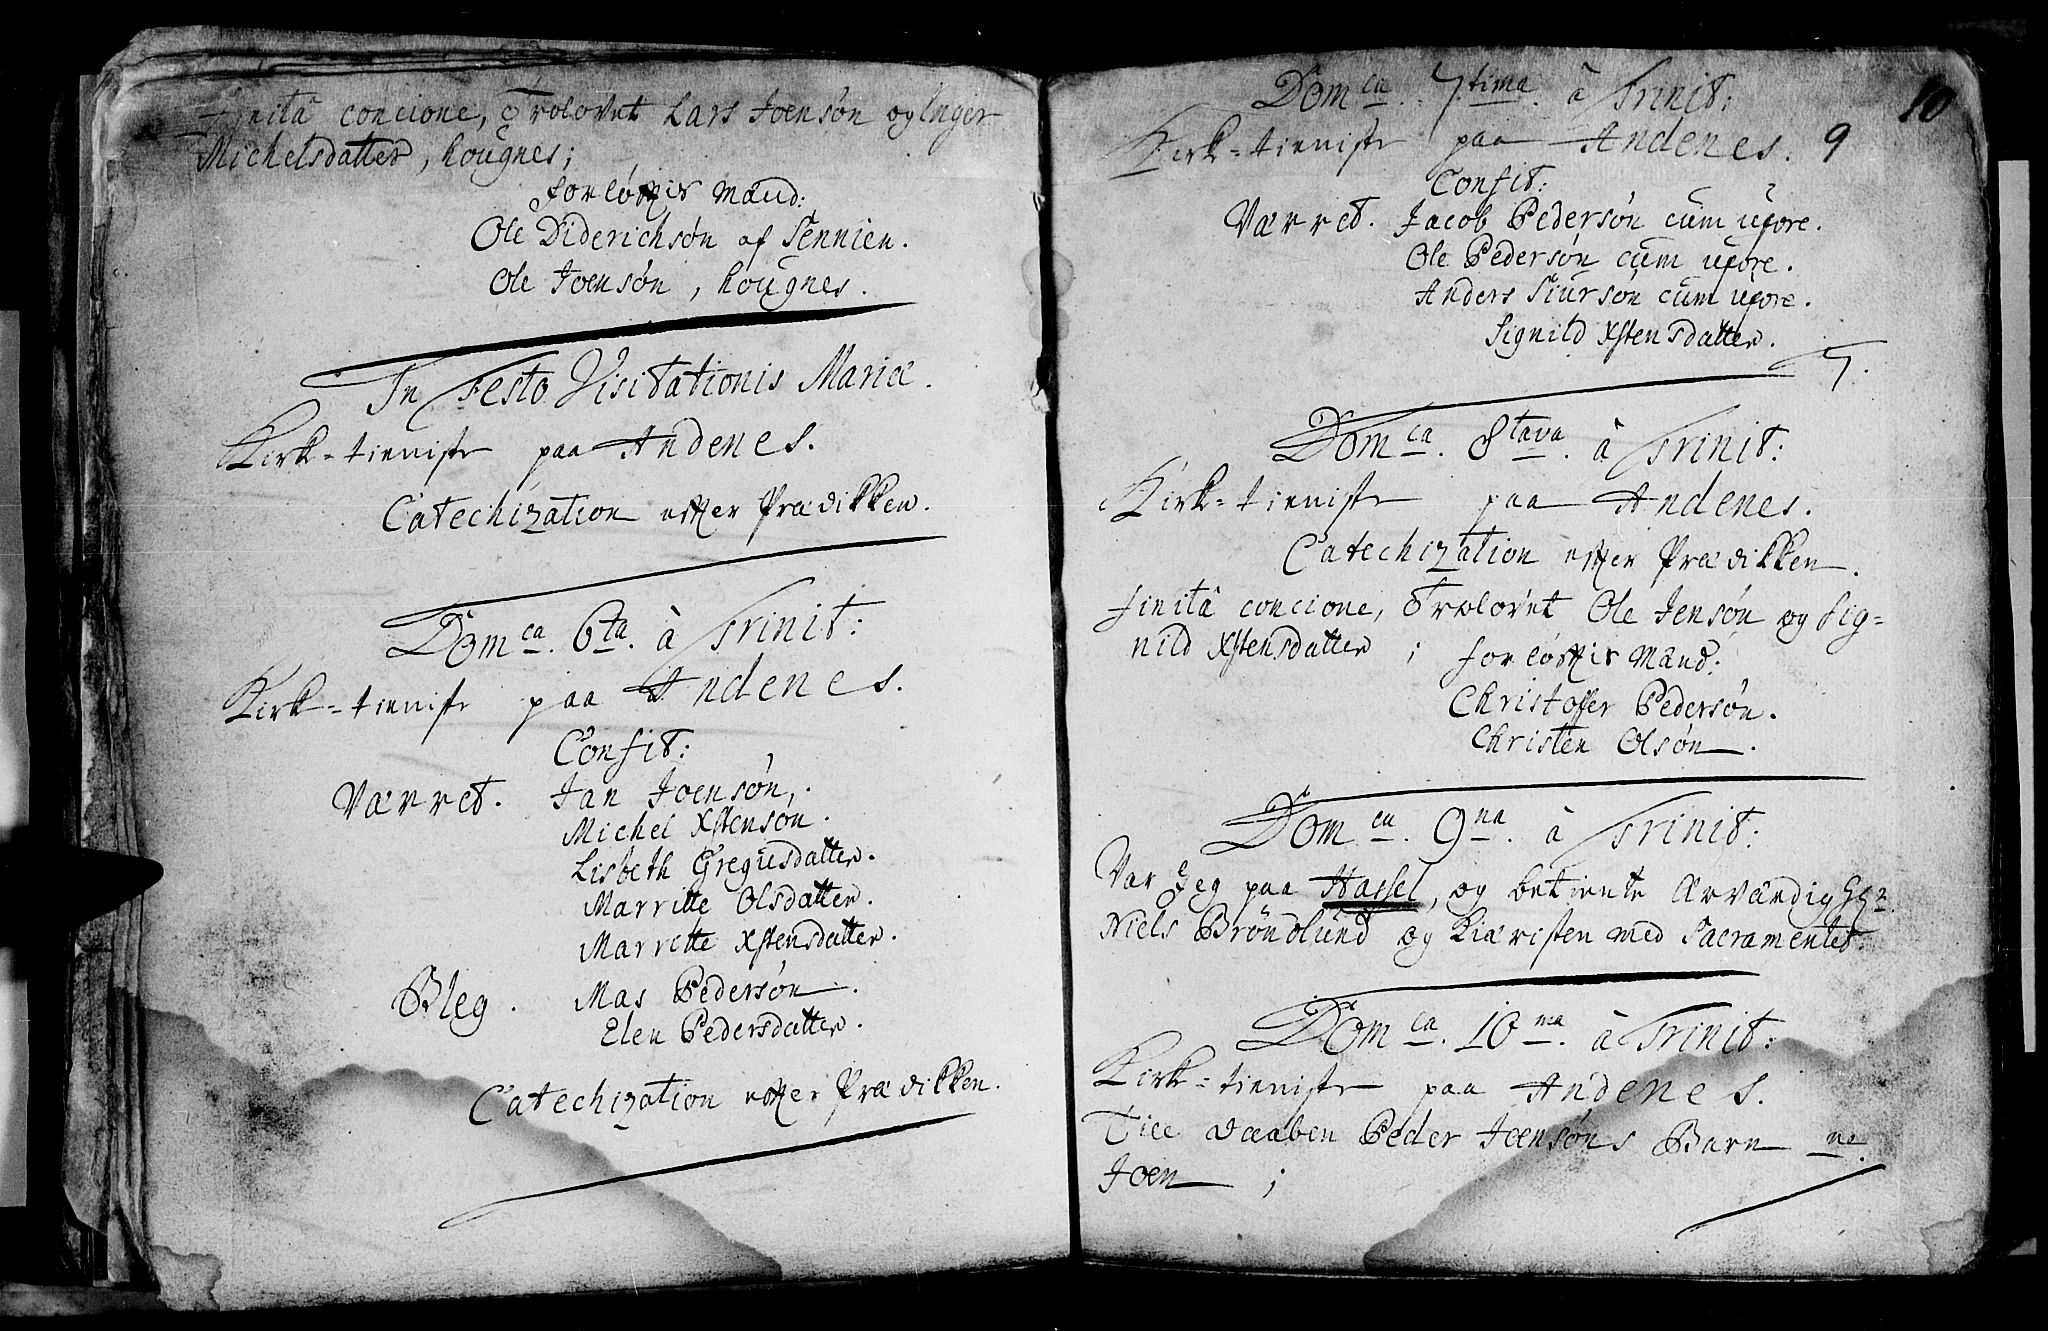 Finitâ concione, Trolovet Lars Joensøn og Inger
Michelsdatter, hougnes;
forløfftis Mænd:
Ole Diderichsøn af Sennien.
Ole Joensøn, hougnes.
In Festo Visitationis Mariæ.
Kirk-tieniste paa Andenes.
Catechization effter Prædikken.
Dom ca. 6ta. à Trinit:
Kirk-tieniste paa Andenes.
Confit:
Værret. Jan Joensøn,.
Michel Xstensøn.
Lisbeth Gregusdatter.
Marritte Olsdatter.
Marritte Xstensdatter.
Bleg. Mas Pedersøn.
Elen Pedersdatter.
Catechization effter Prædikken.
10
Dom ca. 7tima. à Trinit:
Kirk-tieniste paa Andenes. 9
Confit:
Værret. Jacob Pedersøn cum uxore.
Ole Pedersøn cum uxore.
Anders Siursøn cum uxore.
Signild Xstensdatter.
7.
Dom ca. 8tava. à Trinit:
Kirk-tieniste paa Andenes.
Catechization effter Prædikken.
finitâ concione, Trolovet Ole Jensøn og Sig-
nild Xstensdatter; forløfftis Mænd:
Christoffer Pedersøn.
Christen Olsøn.
Dom ca. 9na. à Trinit:
Var Jeg paa Hassel, og betiente Ærværdig Hr.
Niels Brøndlund og Kiæristen med Sacramentet.
Dom ca. 10ma. à Trinit:
Kirk-tieniste paa Andenes.
Till Daaben Peder Joensøns Barn ne.
Joen;